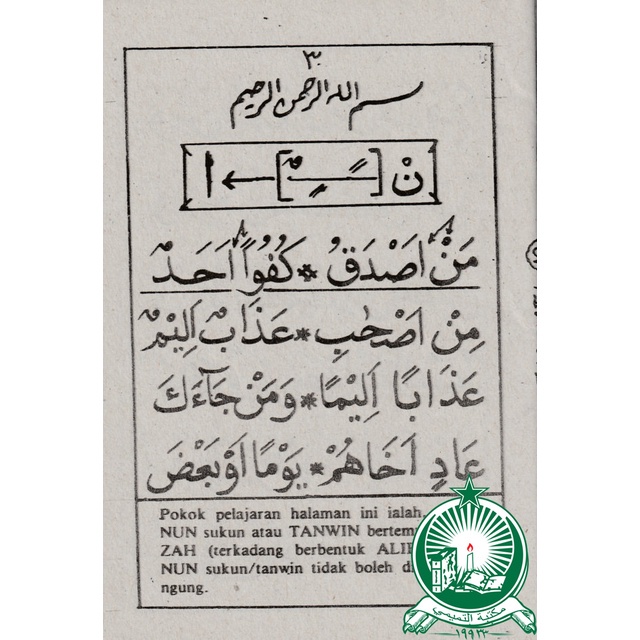 ٣
بسم الله الرحمن الرحيم
نْ [ ــًــٍــٌ ] ← ا
مَنْ اَصْدَقُ * كُفُوًا اَحَدٌ
مِنْ اَصْحٰبِ * عَذَابٌ اَلِيْمٌ
عَذَابًا اَلِيْمًا * وَمَنْ جَآءَكَ
عَادٍ اَخَاهُمْ * يَوْمًا اَوْبَعْضَ
Pokok pelajaran halaman ini ialah,
NUN sukun atau TANWIN
ZAH (terkadang berbentuk
NUN sukun/tanwin tidak boleh
ngung.
مكتبة التميمي